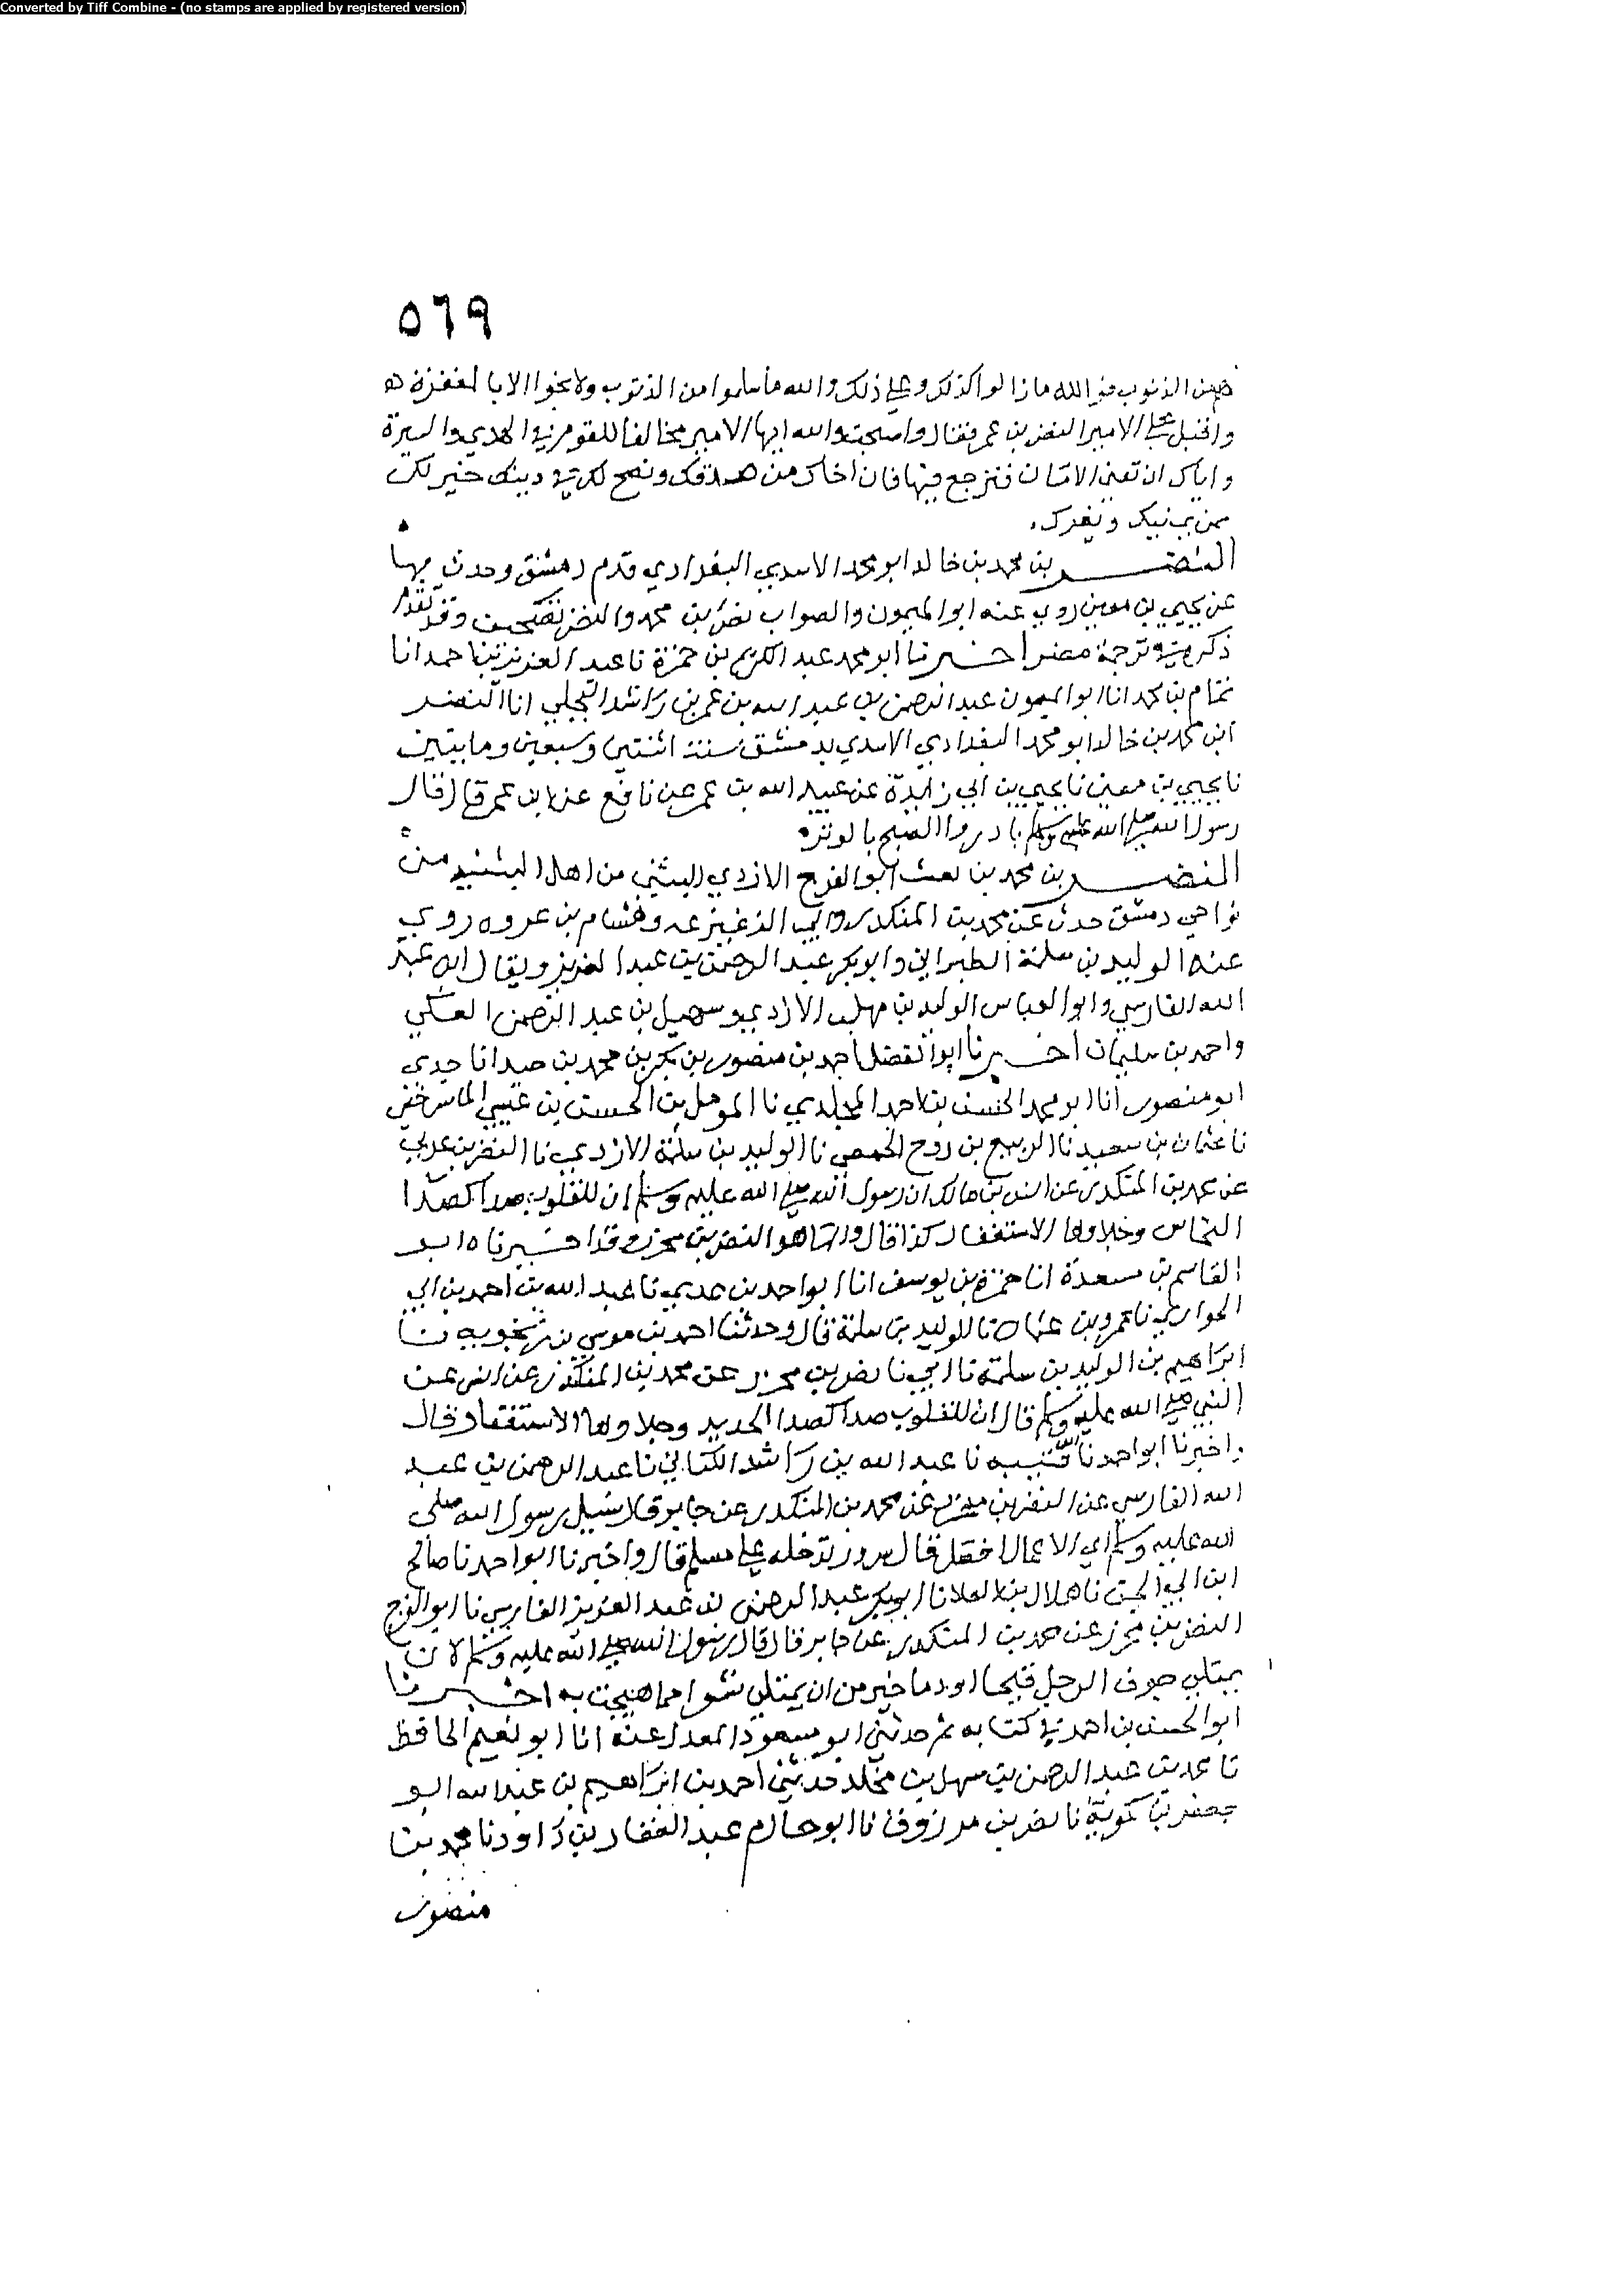 Converted by Tiff Combine - (no stamps are applied by registered version)
٥٦٩
من الذنوب فو الله ما زالوا كذلك وعلى ذلك والله ما سلموا من الذنوب ولا نجوا الا بالمغفرة
واقبل على الامير النضر بن عمر فقال واصبحت والله ايها الامير مخالفا للقوم في الهدي والسيرة
واياك ان تمنى الاماني فترجع فيها فان اخاك من صدقك ونصح لك في دينك خير لك
ممن يمنيك ويغرك
النضر بن محمد بن خالد ابو محمد الاسدي البغدادي قدم دمشق وحدث بها
عن يحيى بن معين روى عنه ابو الميمون والصواب نصر بن محمد والنضر تصحيف وقد تقدم
ذكره في ترجمة اخبرنا ابو محمد عبد الكريم بن حمزة نا عبد العزيز بن احمد انا
تمام بن محمد انا ابو الميمون عبد الرحمن بن عبد الله بن عمر بن راشد البجلي انا النضر
ابن محمد بن خالد ابو محمد البغدادي الاسدي بدمشق سنة اثنتين وسبعين ومايتين
نا يحيى بن معين نا يحيى بن ابي زايدة عن عبيد الله بن عمر عن نافع عن ابن عمر قال قال
رسول الله صلى الله عليه وسلم بادروا الصبح بالوتر
النضر بن محمد بن بعث ابو الفرج الازدي البثني من اهل البثنية من
نواحي دمشق حدث عن محمد بن المنكدر وابي الزعيزعه وهشام بن عروه روى
عنه الوليد بن سلمة الطبراني وابو بكر عبد الرحمن بن عبد العزيز ويقال ابن عبد
الله الفارسي وابو العباس الوليد بن مهلب الازدي وسهيل بن عبد الرحمن العكي
واحمد بن سليمان اخبرنا ابو الفضل احمد بن منصور بن بكر بن محمد بن انا جدي
ابو منصور انا ابو محمد الحسن بن احمد المخلدي نا المومل بن الحسن بن عيسى الماسرجسي
نا عثمان بن سعيد نا الربيع بن روح الحمصي نا الوليد بن سلمة الازدي نا النضر بن عربي
عن محمد بن المنكدر عن انس بن مالك ان رسول الله صلى الله عليه وسلم ان للقلوب صدا كصدا
النحاس وجلاوها الاستغفار كذا قال وانما هو النضر بن محرز وقد اخبرناه ابو
القاسم بن مسعدة انا حمزة بن يوسف انا ابو احمد بن عدي نا عبد الله بن احمد بن ابي
الحواري نا عمرو بن نا الوليد بن سلمة قال وحدثنا احمد بن موسى بن زنجويه نا
ابراهيم بن الوليد بن سلمة نا ابي نا نضر بن محرز عن محمد بن المنكدر عن انس عن
النبي صلى الله عليه وسلم قال ان للقلوب صدا كصدا الحديد وجلاوها الاستغفار قال
واخبرنا ابو احمد نا نا عبد الله بن راشد الكتاني نا عبد الرحمن بن عبد
الله الفارسي عن النضر بن محرز عن محمد بن المنكدر عن جابر قال سئل رسول الله صلى
الله عليه وسلم اي الاعمال افضل قال سرور تدخله على مسلم قال واخبرنا ابو احمد نا صالح
ابن ابي الجن نا هلال بن العلا نا ابو بكر عبد الرحمن بن عبد العزيز الفارسي نا ابو الفرج
النضر بن محرز عن محمد بن المنكدر عن جابر قال قال رسول الله صلى الله عليه وسلم لان
يمتلي جوف الرجل قيحا او دما خير من ان يمتلي شعرا مما هجيت به اخبرنا
ابو الحسن بن احمد في كتابه ثم حدثني ابو مسعود المعدل عنه انا ابو نعيم الحافظ
نا محمد بن عبد الرحمن بن سهل بن مخلد حدثني احمد بن ابراهيم بن عبد الله ابو
جعفر بن نا نصر بن مرزوق نا ابو حازم عبد الغفار بن داود نا محمد بن
منصور